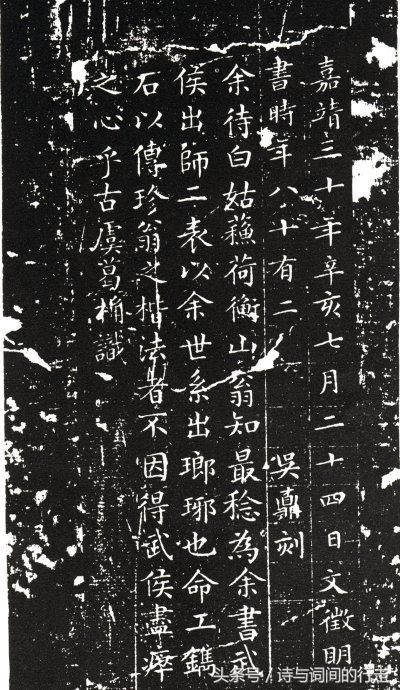 嘉靖三十年辛亥七月二十四日文徵明
書時年八十有二 吳鼒刻
余待白姑蘓荷衡山翁知最稔為余書武
侯出師二表以余世系出瑯琊也命工鐫
石以傳珍翁之楷法者不因得武侯盡瘁
之心乎古虞葛桷識
头条号/诗与词间的行走